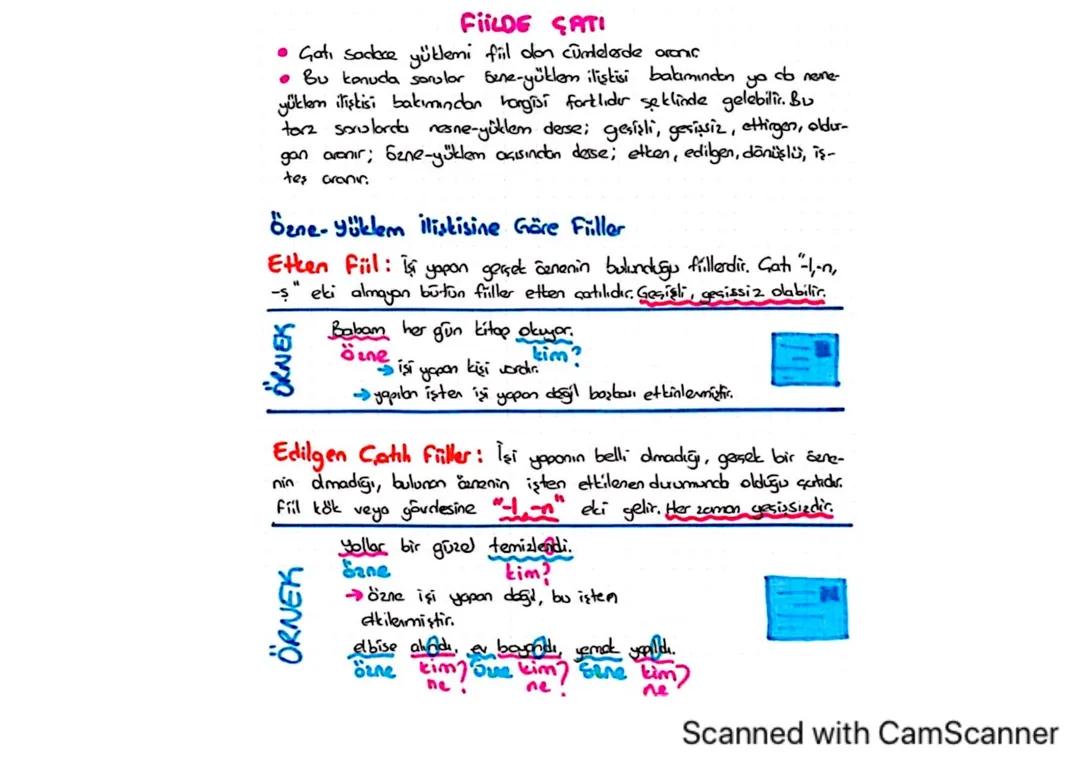 FİİLDE ÇATI
• Çatı sadece yüklemi fiil olan cümlelerde aranır.
• Bu konuda sorular özne-yüklem ilişkisi bakımından ya da nesne-
yüklem ilişkisi bakımından hangisi farklıdır şeklinde gelebilir. Bu
tarz sorularda nesne-yüklem derse; geçişli, geçişsiz, ettirgen, oldur-
gan aranır; özne-yüklem açısından derse; etken, edilgen, dönüşlü, iş-
teş aranır.
Özne-Yüklem İlişkisine Göre Fiiller
Etken Fiil: İşi yapan gerçek öznenin bulunduğu fiillerdir. Çatı "-l,-n,
-ş" eki almayan bütün fiiller etken çatılıdır. Geçişli, geçişsiz olabilir.
ÖRNEK
Babam her gün kitap okuyor.
özne kim?
→ işi yapan kişi vardır.
→ yapılan işten işi yapan değil başkası etkinlenmiştir.
Edilgen Çatılı Fiiller: İşi yapanın belli olmadığı, gerçek bir özne-
nin olmadığı, bulunan öznenin işten etkilenen durumunda olduğu çatıdır.
Fiil kök veya gövdesine "-l,-n" eki gelir. Her zaman geçişsizdir.
ÖRNEK
Yollar bir güzel temizlendi.
özne kim?
→ özne işi yapan değil, bu işten
etkilenmiştir.
elbise alındı, ev boyandı, yemek yapıldı.
özne kim? özne kim? özne kim?
ne? ne? ne
Scanned with CamScanner